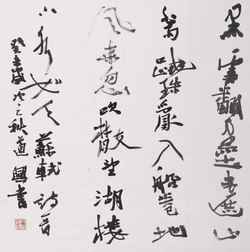 黑雲翻墨未遮山
白雨跳珠亂入船卷地
風來忽吹散望湖樓
下水如天 蘇軾詩首
癸未歲秋道興書